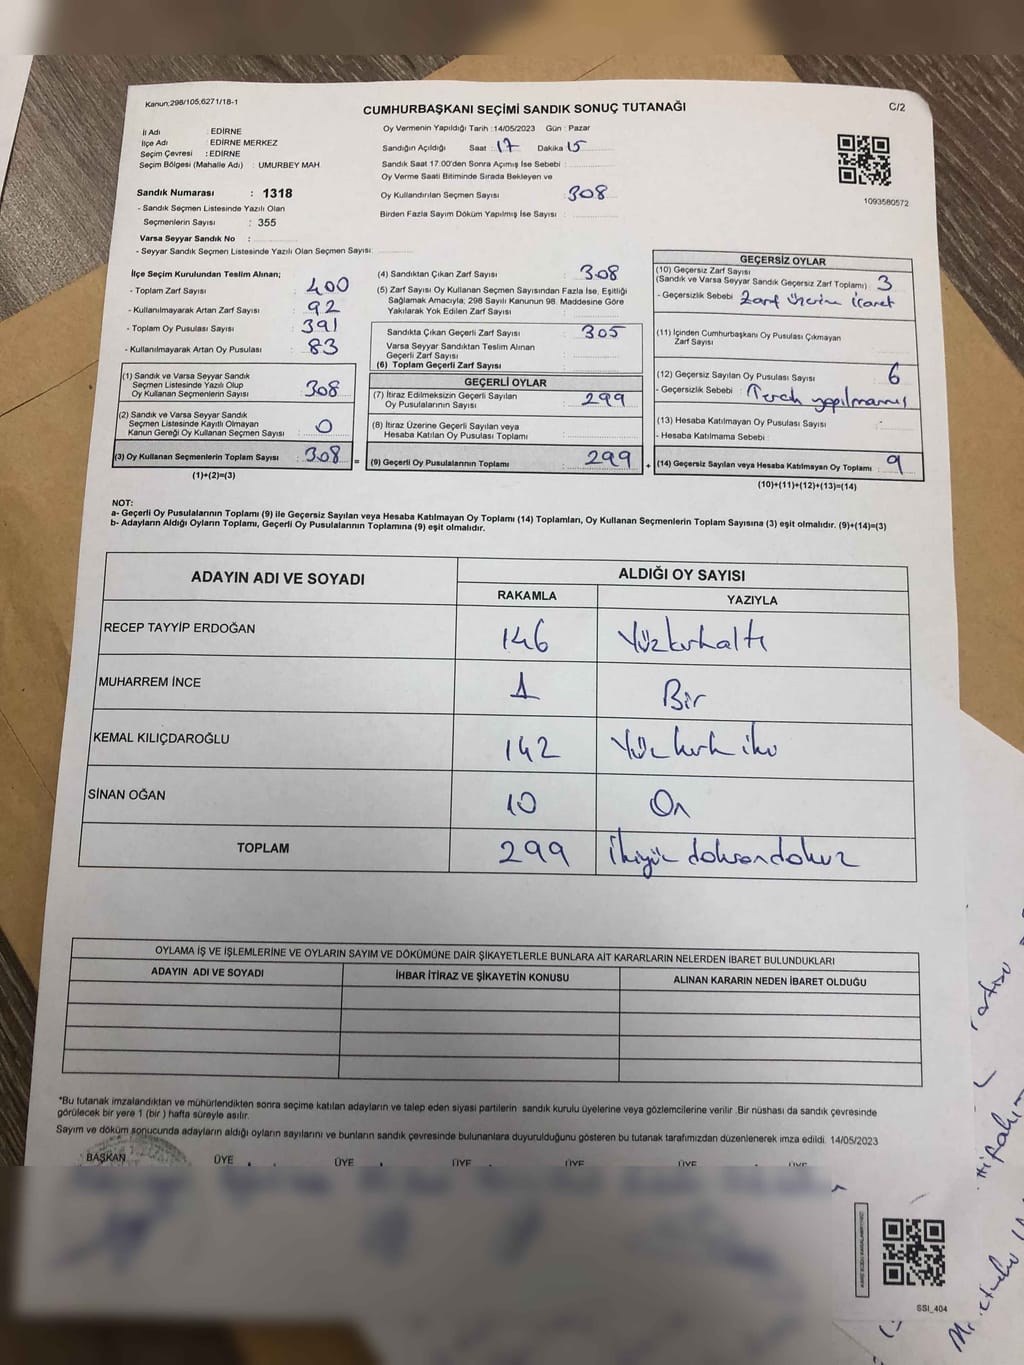 Kanun;298/105,6271/18-1
CUMHURBAŞKANI SEÇİMİ SANDIK SONUÇ TUTANAĞI
C/2
İl Adı : EDİRNE
İlçe Adı : EDİRNE MERKEZ
Seçim Çevresi : EDİRNE
Seçim Bölgesi (Mahalle Adı) : UMURBEY MAH
Sandık Numarası : 1318
- Sandık Seçmen Listesinde Yazılı Olan
Seçmenlerin Sayısı : 355
Varsa Seyyar Sandık No :
- Seyyar Sandık Seçmen Listesinde Yazılı Olan Seçmen Sayısı:
Oy Vermenin Yapıldığı Tarih :14/05/2023 Gün : Pazar
Sandığın Açıldığı Saat : 17 Dakika 15
Sandık Saat 17.00'den Sonra Açımış İse Sebebi :
Oy Verme Saati Bitiminde Sırada Bekleyen ve
Oy Kullandırılan Seçmen Sayısı : 308
Birden Fazla Sayım Döküm Yapılmış İse Sayısı :
1093580572
İlçe Seçim Kurulundan Teslim Alınan;
- Toplam Zarf Sayısı : 400
- Kullanılmayarak Artan Zarf Sayısı : 92
- Toplam Oy Pusulası Sayısı : 391
- Kullanılmayarak Artan Oy Pusulası : 83
(1) Sandık ve Varsa Seyyar Sandık
Seçmen Listesinde Yazılı Olup
Oy Kullanan Seçmenlerin Sayısı : 308
(2) Sandık ve Varsa Seyyar Sandık
Seçmen Listesinde Kayıtlı Olmayan
Kanun Gereği Oy Kullanan Seçmen Sayısı : 0
(3) Oy Kullanan Seçmenlerin Toplam Sayısı : 308 =
(1)+(2)=(3)
(4) Sandıktan Çıkan Zarf Sayısı : 308
(5) Zarf Sayısı Oy Kullanan Seçmen Sayısından Fazla İse, Eşitliği
Sağlamak Amacıyla; 298 Sayılı Kanunun 98. Maddesine Göre
Yakılarak Yok Edilen Zarf Sayısı :
Sandıkta Çıkan Geçerli Zarf Sayısı : 305
Varsa Seyyar Sandıktan Teslim Alınan
Geçerli Zarf Sayısı :
(6) Toplam Geçerli Zarf Sayısı :
GEÇERLİ OYLAR
(7) İtiraz Edilmeksizin Geçerli Sayılan
Oy Pusulalarının Sayısı : 299
(8) İtiraz Üzerine Geçerli Sayılan veya
Hesaba Katılan Oy Pusulası Toplamı :
(9) Geçerli Oy Pusulalarının Toplamı : 299 +
GEÇERSİZ OYLAR
(10) Geçersiz Zarf Sayısı
(Sandık ve Varsa Seyyar Sandık Geçersiz Zarf Toplamı) : 3
- Geçersizlik Sebebi : Zarf üzerine icaret
(11) İçinden Cumhurbaşkanı Oy Pusulası Çıkmayan
Zarf Sayısı :
(12) Geçersiz Sayılan Oy Pusulası Sayısı : 6
- Geçersizlik Sebebi : Tercih yapılmamış
(13) Hesaba Katılmayan Oy Pusulası Sayısı :
- Hesaba Katılmama Sebebi :
(14) Geçersiz Sayılan veya Hesaba Katılmayan Oy Toplamı : 9
(10)+(11)+(12)+(13)=(14)
NOT:
a- Geçerli Oy Pusulalarının Toplamı (9) ile Geçersiz Sayılan veya Hesaba Katılmayan Oy Toplamı (14) Toplamları, Oy Kullanan Seçmenlerin Toplam Sayısına (3) eşit olmalıdır. (9)+(14)=(3)
b- Adayların Aldığı Oyların Toplamı, Geçerli Oy Pusulalarının Toplamına (9) eşit olmalıdır.
ADAYIN ADI VE SOYADI
ALDIĞI OY SAYISI
RAKAMLA YAZIYLA
RECEP TAYYİP ERDOĞAN 146 Yüzkırkaltı
MUHARREM İNCE 1 Bir
KEMAL KILIÇDAROĞLU 142 Yüz kırk iki
SİNAN OĞAN 10 On
TOPLAM 299 İkiyüz doksandokuz
OYLAMA İŞ VE İŞLEMLERİNE VE OYLARIN SAYIM VE DÖKÜMÜNE DAİR ŞİKAYETLERLE BUNLARA AİT KARARLARIN NELERDEN İBARET BULUNDUKLARI
ADAYIN ADI VE SOYADI İHBAR İTİRAZ VE ŞİKAYETİN KONUSU ALINAN KARARIN NEDEN İBARET OLDUĞU
*Bu tutanak imzalandıktan ve mühürlendikten sonra seçime katılan adayların ve talep eden siyasi partilerin sandık kurulu üyelerine veya gözlemcilerine verilir .Bir nüshası da sandık çevresinde
görülecek bir yere 1 (bir ) hafta süreyle asılır.
Sayım ve döküm sonucunda adayların aldığı oyların sayılarını ve bunların sandık çevresinde bulunanlara duyurulduğunu gösteren bu tutanak tarafımızdan düzenlenerek imza edildi. 14/05/2023
BAŞKAN ÜYE ÜYE ÜYE ÜYE ÜYE ÜYE
SSI_404